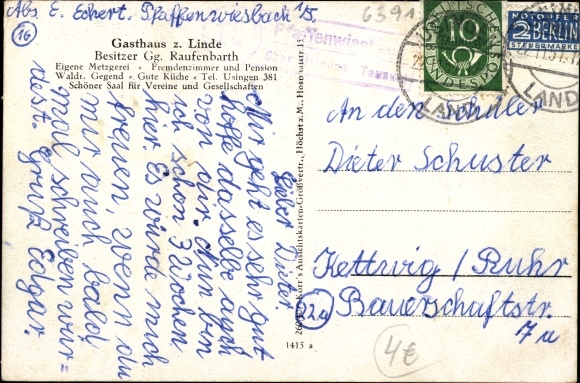 Abs. E. Eckert. Pfaffenwiesbach i/S.
16
Gasthaus z. Linde
Besitzer Gg. Raufenbarth
Eigene Metzgerei - Fremdenzimmer und Pension
Waldr. Gegend - Gute Küche - Tel. Usingen 381
Schöner Saal für Vereine und Gesellschaften
6391
Pfaffenwiesb
10
DEUTSCHE BUNDESPOST
NOTOPFER
2 BERLIN
STEUERMARKE
USINGEN
LAND
LAND
Lieber Dieter.
Mir geht es sehr gut
hoffe dasselbe auch
von dir. Nun bin
ich schon 3 Wochen
hier. Es würde mich
freuen, wenn du
mir auch bald
mal schreiben wür=
dest. Gruß Edgar.
Korr's Ansichtskarten-Großvertr., Höchst a. M., Hosponstr. 15
1415 a
An den Schüler
Dieter Schuster
Kettwig / Ruhr
22a
Bauerschaftstr.
7a
4€